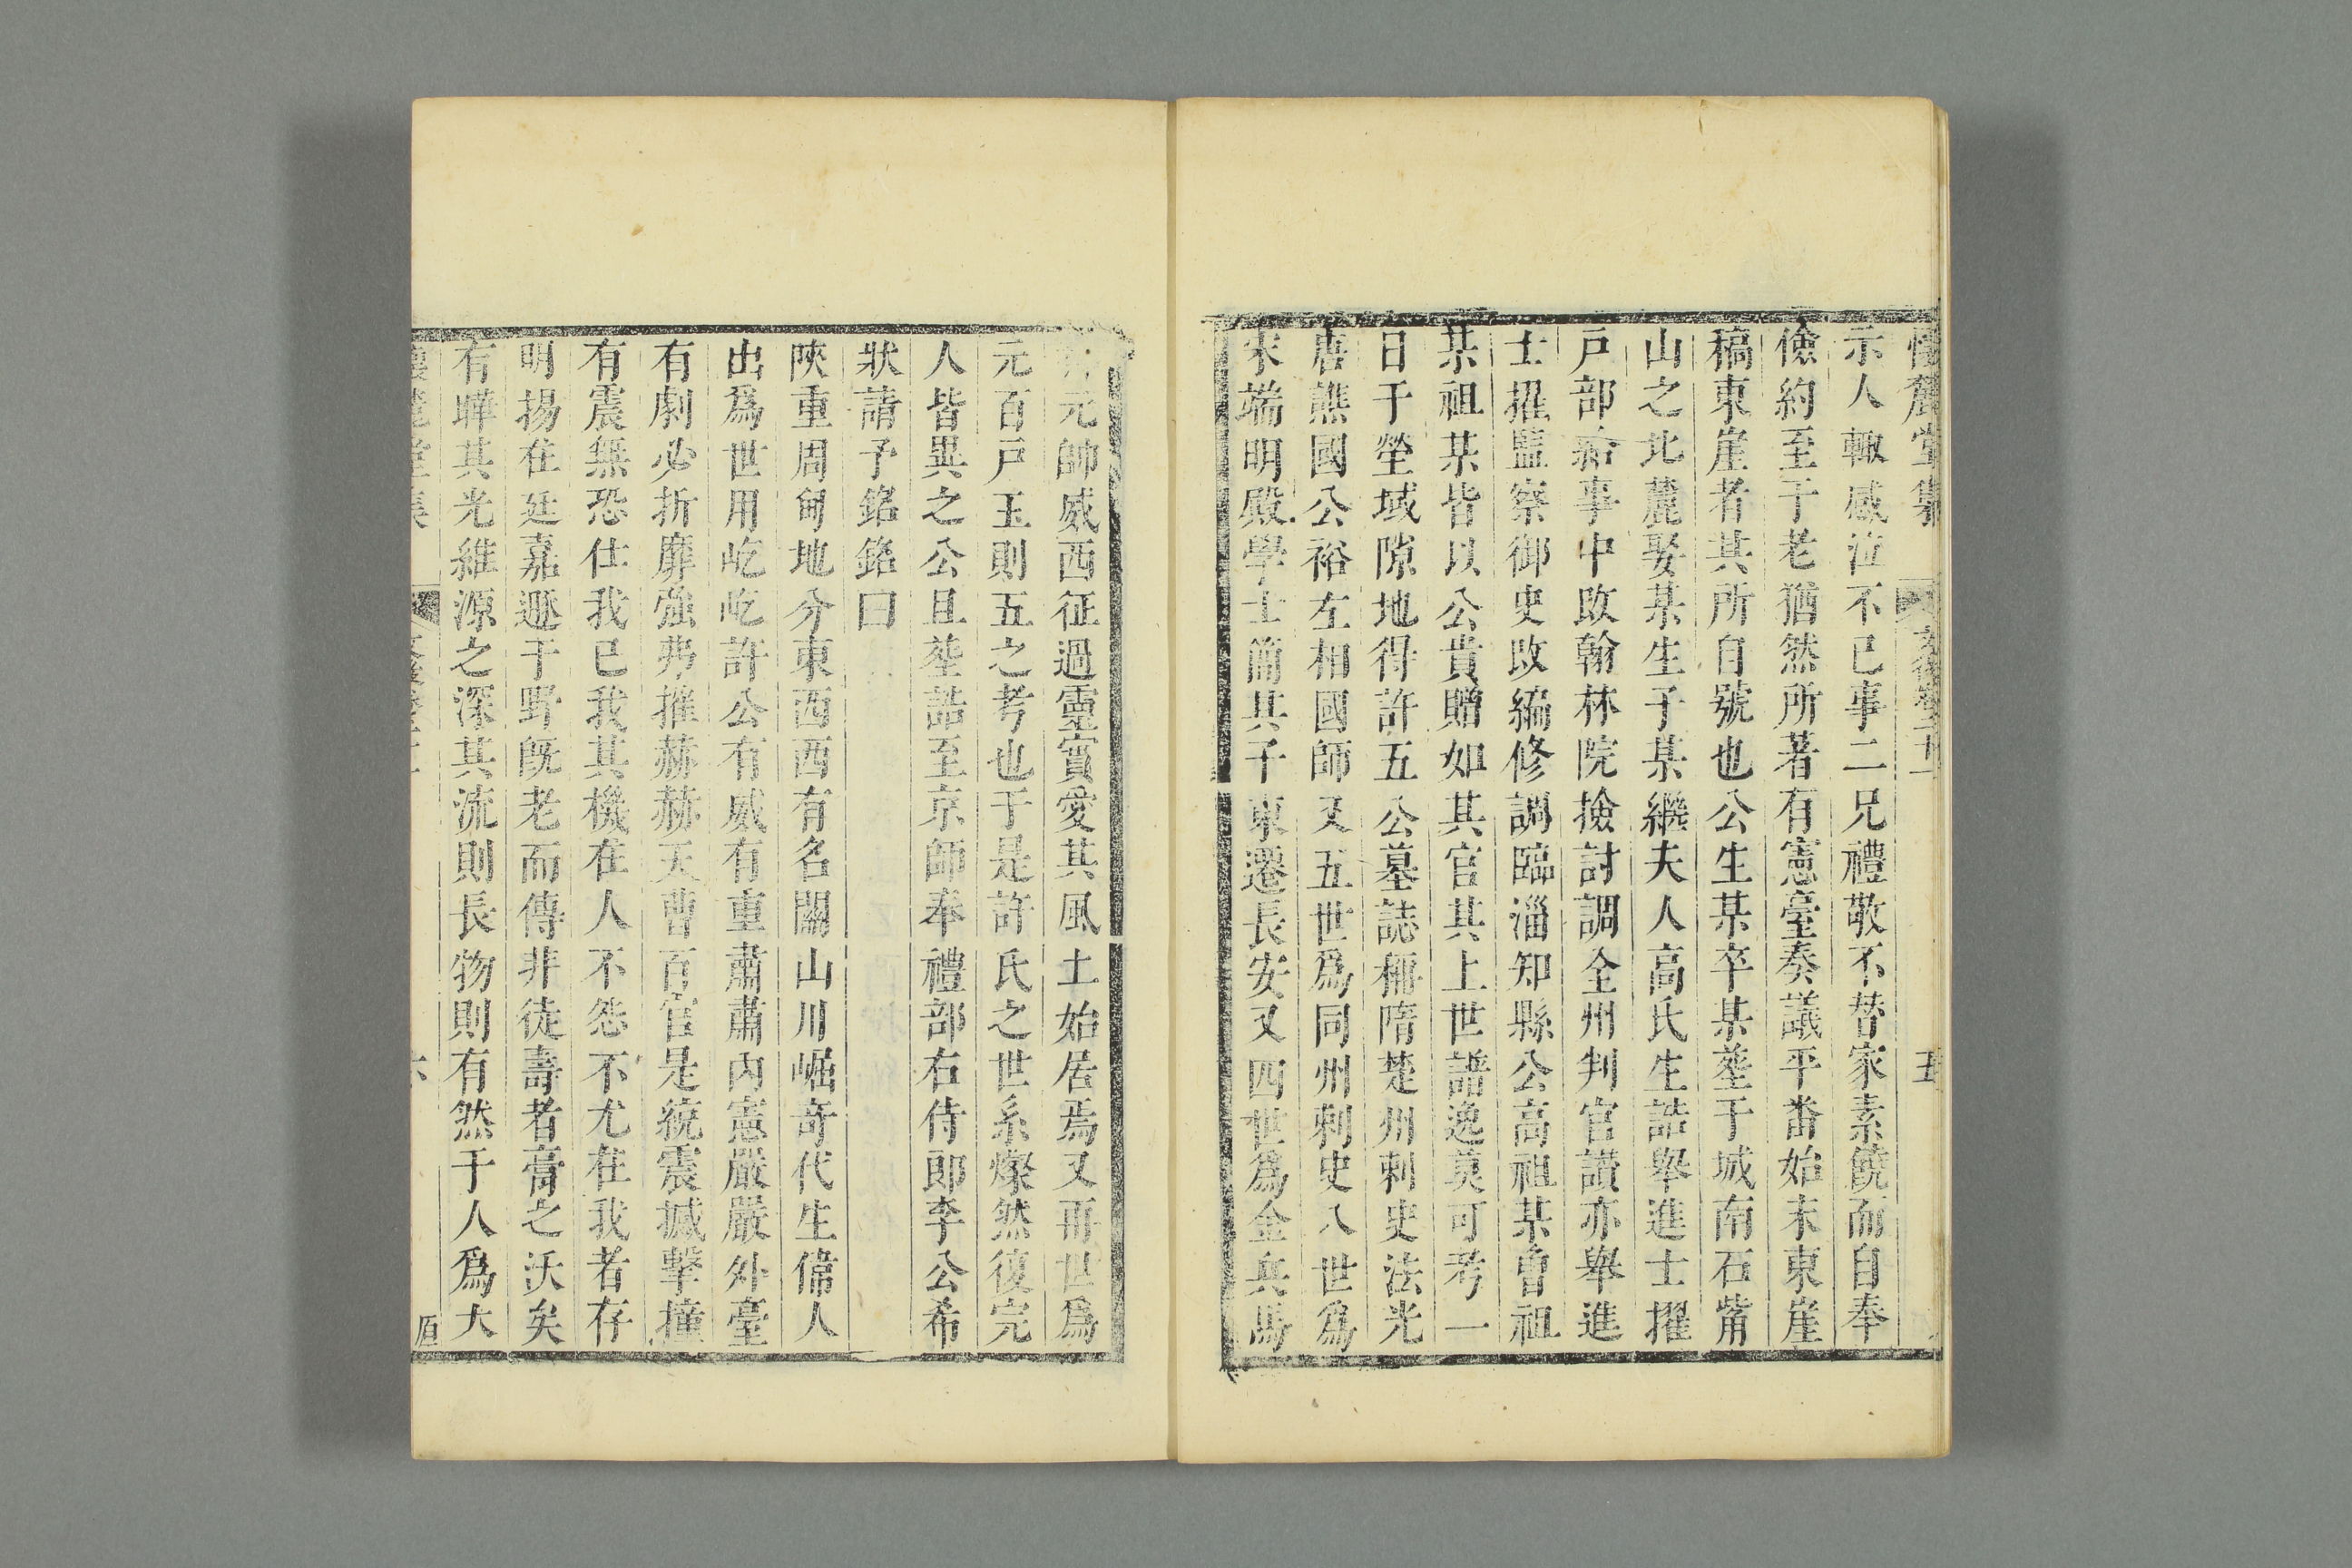 懷麓堂集　文後卷二十　五
示人輙感泣不已事二兄禮敬不替家素饒而自奉
儉約至于老猶然所著有憲臺奏議平畨始末東崖
稿東崖者其所自號也公生某卒某塟于城南石觜
山之北麓娶某生子某繼夫人高氏生誥舉進士擢
戶部給事中改翰林院撿討調全州判官讃亦舉進
士擢監察御史改編修調臨淄知縣公高祖某曾祖
某祖某皆以公貴贈如其官其上世譜逸莫可考一
日于塋域隙地得許五公墓誌稱隋楚州刺史法光
唐譙國公裕左相國師又五世爲同州刺史八世爲
宋端明殿學士簡其子東遷長安又四世爲金兵馬
元帥威西征過靈寶愛其風土始居焉又再世爲
元百戶玉則五之考也于是許氏之世系燦然復完
人皆異之公且塟誥至京師奉禮部右侍郎李公希
狀請予銘銘曰
陝重周甸地分東西西有名關山川崛奇代生偉人
出爲世用屹屹許公有威有重肅肅內憲嚴嚴外臺
有劇必折靡強弗摧赫赫天曹百官是統震撼擊撞
有震無恐仕我已我其機在人不怨不尤在我者存
明揚在廷嘉遯于野旣老而傳非徒壽者膏之沃矣
有曄其光維源之深其流則長物則有然于人爲大
懷麓堂集　文後卷二十　六